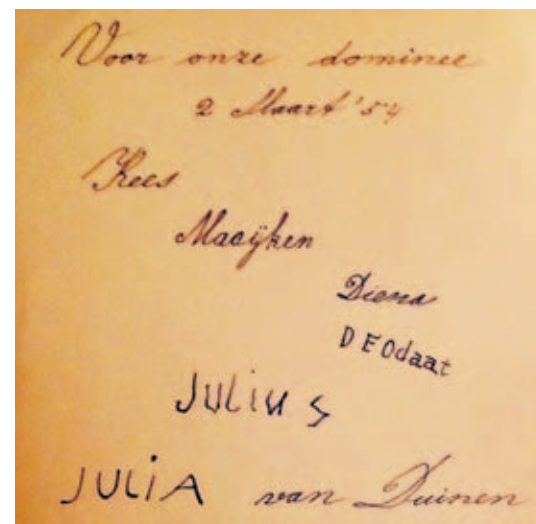 Voor onze dominee
2 Maart '54
Kees
Maaijken
Diena
DEOdaat
JULIUS
JULIA van Duinen